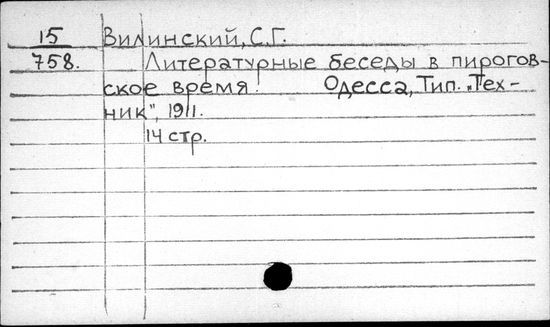 15 Вилинский, С.Г.
758. Литературные беседы в пирогов-
ское время. Одесса, Тип. „Тех-
ник", 1911.
14 стр.